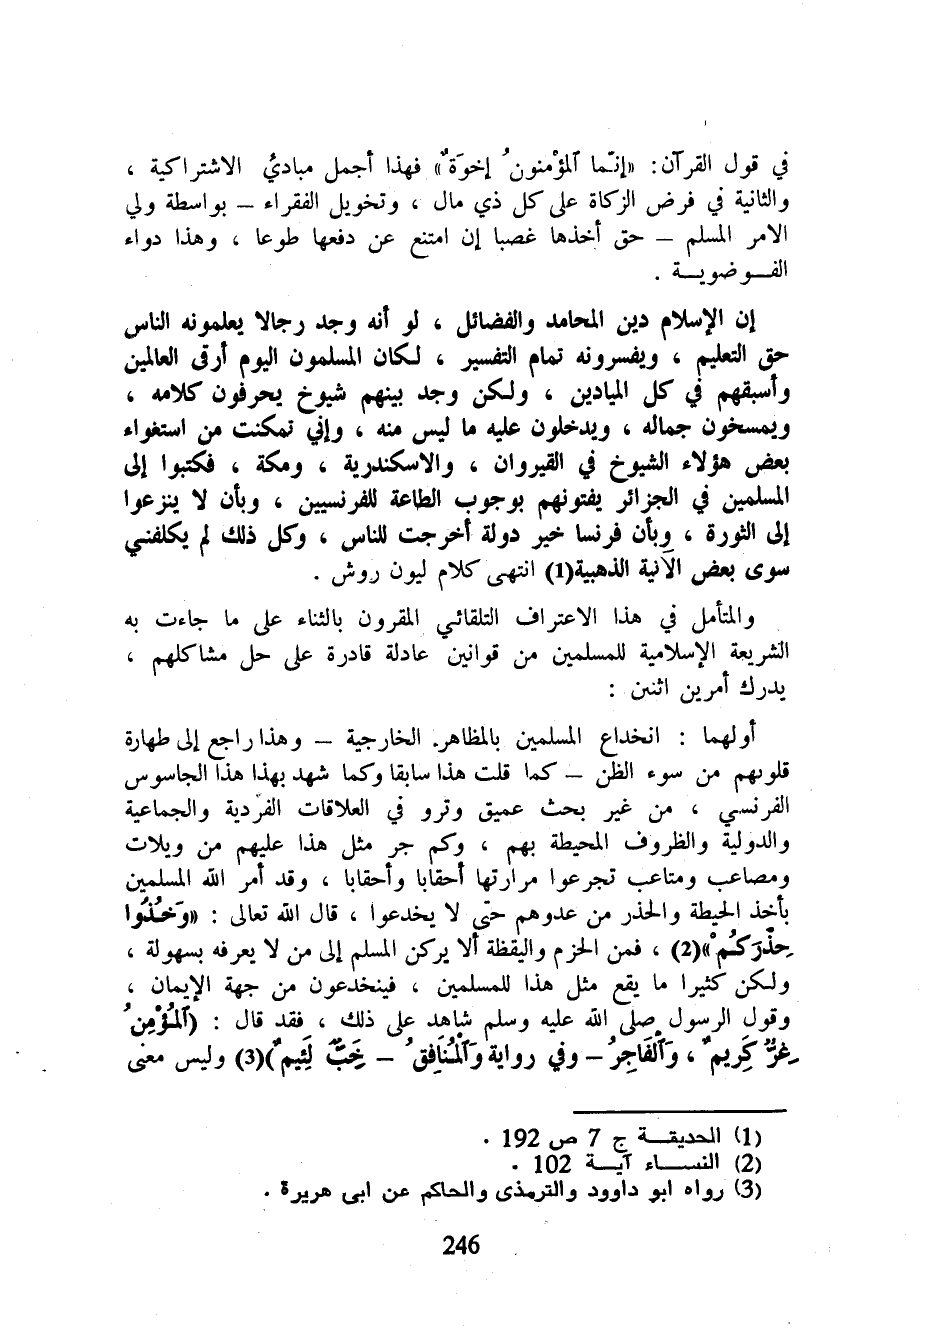 في قول القرآن: «إنّما ٱلمؤْمنونُ إخوَةٌ» فهذا أجمل مبادئُ الاشتراكية ،
والثانية في فرض الزكاة على كل ذي مال ، وتخويل الفقراء — بواسطة ولي
الامر المسلم — حق أخذها غصبا إن امتنع عن دفعها طوعا ، وهذا دواء
الفـوضويـة .
إن الإسلام دين المحامد والفضائل ، لو أنه وجد رجالا يعلمونه الناس
حق التعليم ، ويفسرونه تمام التفسير ، لكان المسلمون اليوم أرقى العالمين
وأسبقهم في كل الميادين ، ولكن وجد بينهم شيوخ يحرفون كلامه ،
ويمسخون جماله ، ويدخلون عليه ما ليس منه ، وإني تمكنت من استغواء
بعض هؤلاء الشيوخ في القيروان ، والاسكندرية ، ومكة ، فكتبوا إلى
المسلمين في الجزائر يفتونهم بوجوب الطاعة للفرنسيين ، وبأن لا ينزعوا
إلى الثورة ، وبأن فرنسا خير دولة أخرجت للناس ، وكل ذلك لم يكلفني
سوى بعض الآنية الذهبية(1) انتهى كلام ليون روش .
والمتأمل في هذا الاعتراف التلقائي المقرون بالثناء على ما جاءت به
الشريعة الإسلامية للمسلمين من قوانين عادلة قادرة على حل مشاكلهم ،
يدرك أمرين اثنين :
أولهما : انخداع المسلمين بالمظاهر. الخارجية — وهذا راجع إلى طهارة
قلوبهم من سوء الظن — كما قلت هذا سابقا وكما شهد بهذا هذا الجاسوس
الفرنسي ، من غير بحث عميق وترو في العلاقات الفردية والجماعية
والدولية والظروف المحيطة بهم ، وكم جر مثل هذا عليهم من ويلات
ومصاعب ومتاعب تجرعوا مرارتها أحقابا وأحقابا ، وقد أمر الله المسلمين
بأخذ الحيطة والحذر من عدوهم حتّى لا يخدعوا ، قال الله تعالى : «وَخُذُوا
حِذْرَكُمْ»(2) ، فمن الحزم واليقظة ألا يركن المسلم إلى من لا يعرفه بسهولة ،
ولكن كثيرا ما يقع مثل هذا للمسلمين ، فينخدعون من جهة الإيمان ،
وقول الرسول صلى الله عليه وسلم شاهد على ذلك ، فقد قال : (ٱلمُؤْمِنُ
غِرٌّ كَرِيمٌ ، وَٱلفَاجِرُ — وفي رواية وَٱلْمُنَافِقُ — خَبٌّ لَئِيمٌ)(3) وليس معنى
(1) الحديقـة ج 7 ص 192 .
(2) النسـاء آيـة 102 .
(3) رواه ابو داوود والترمذى والحاكم عن ابى هريرة .
246